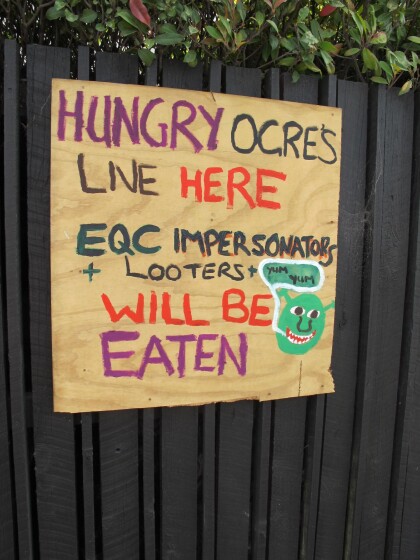 HUNGRY OGRE'S
LIVE HERE
EQC IMPERSONATORS
+ LOOTERS +
YUM
YUM
WILL BE
EATEN